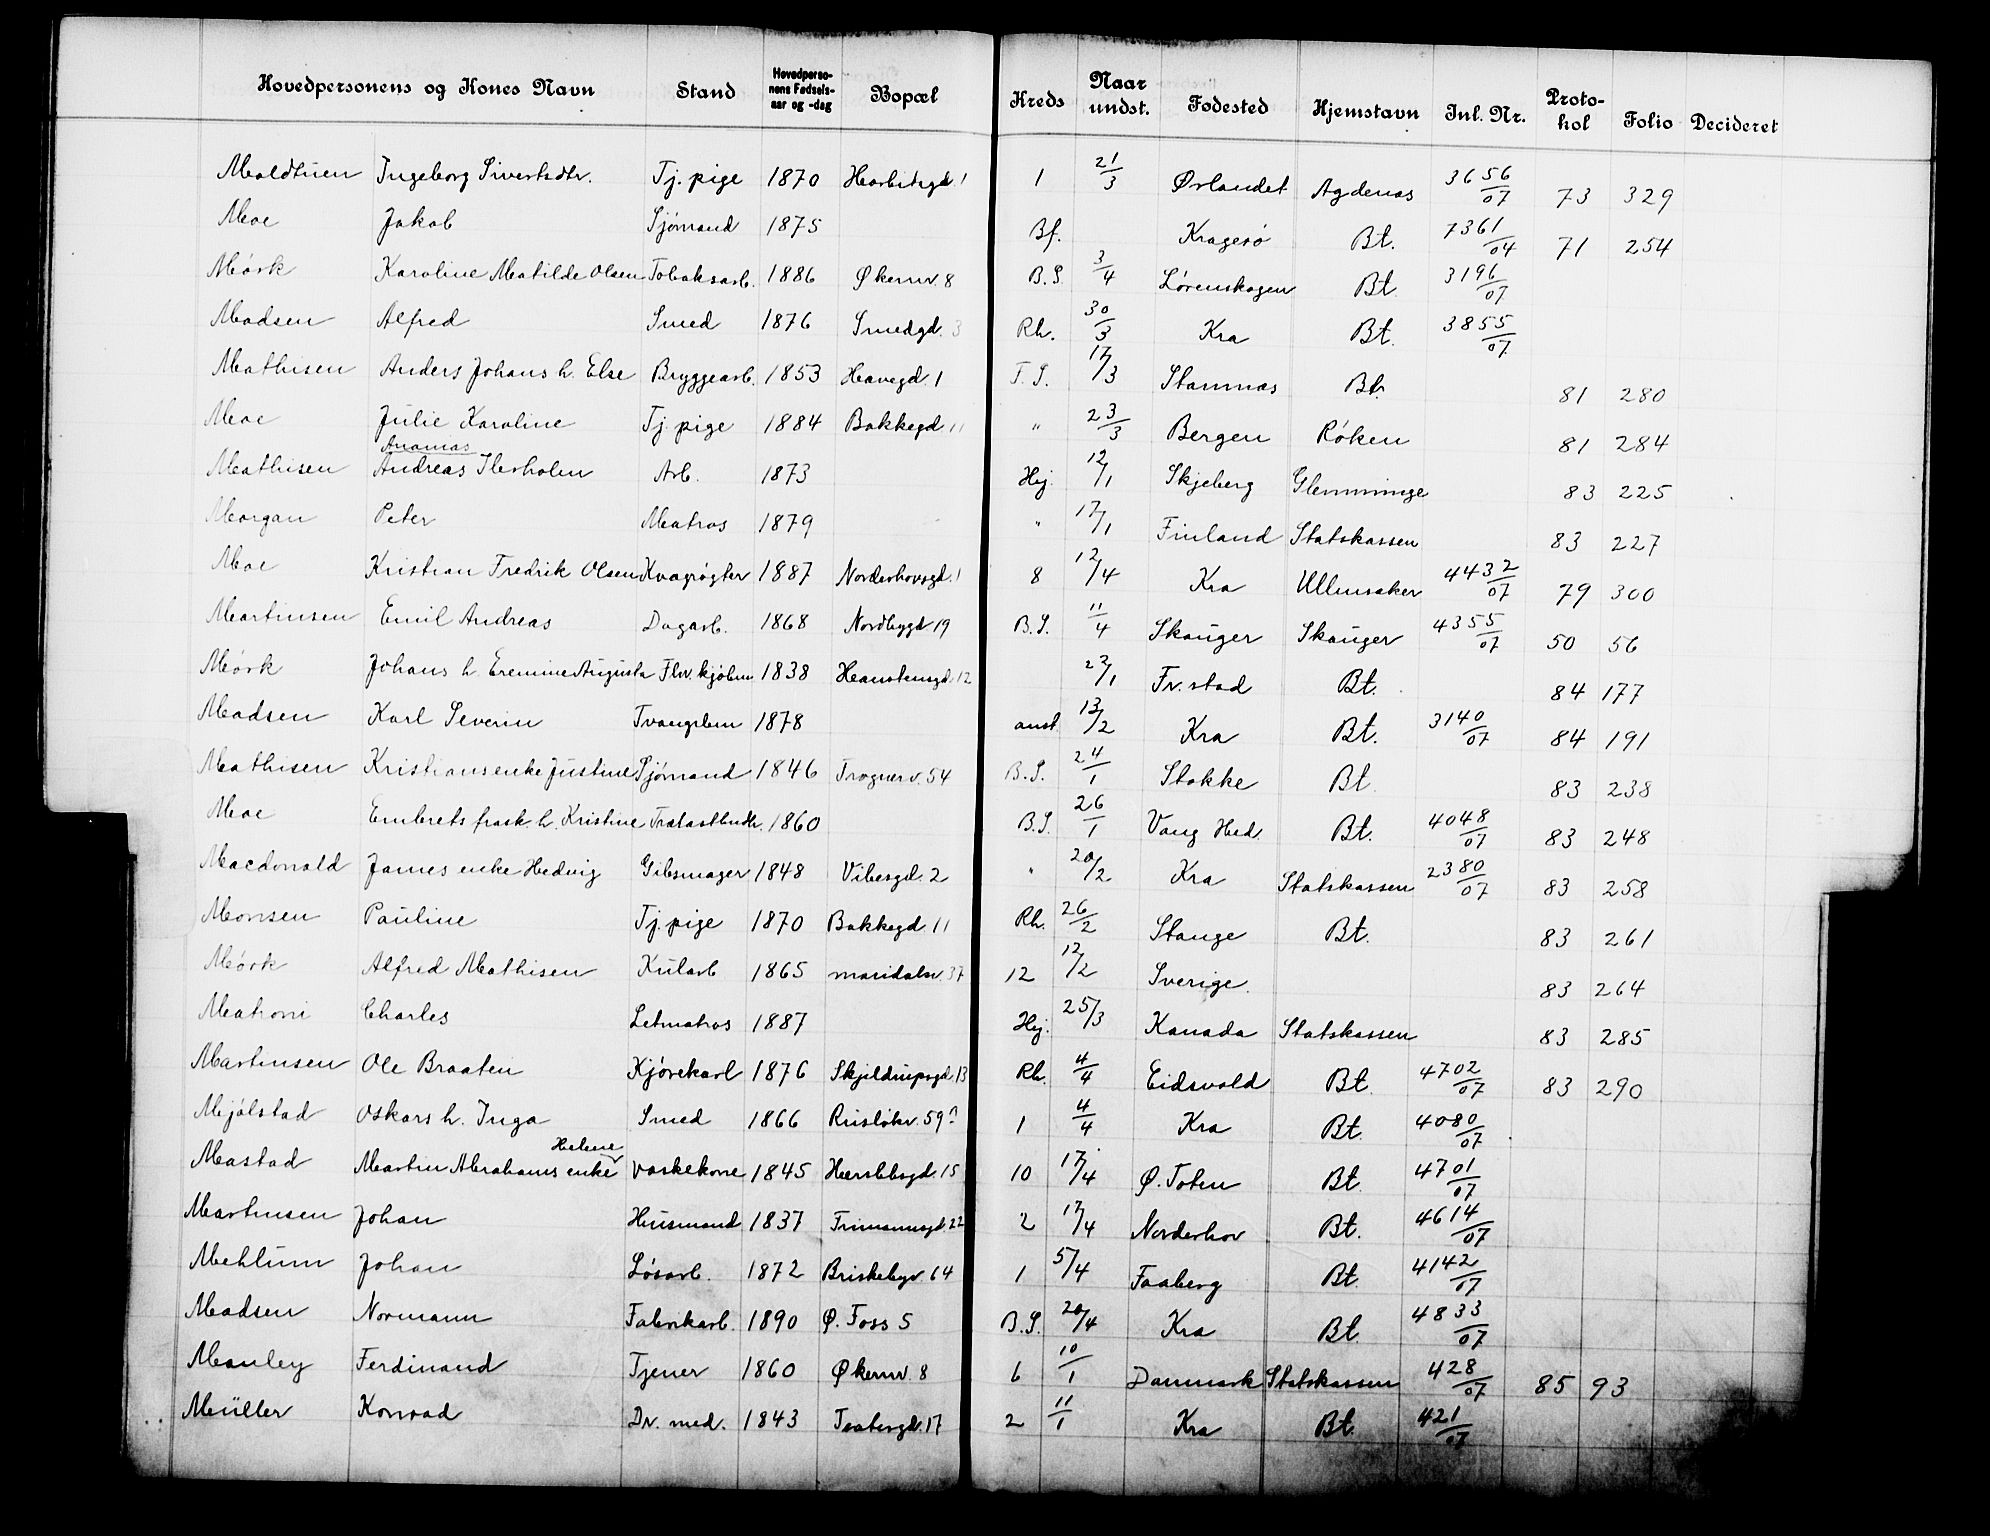 Hovedpersonens og Kones Navn Stand Hovedperso-nens Fødsels-aar og -dag Bopæl Kreds Naar undst. Fødested Hjemstavn Inl. Nr. Proto-kol Folio Decideret
Maldtuen Ingeborg Sivertsdtr. Tj. pige 1870 Harbitzgd. 1 1 21/3 Ørlandet Agdenæs 3656/07 73 329
Moe Jakob Sjømand 1875 Bf. Kragerø Bt. 7361/04 71 254
Mørk Karoline Matilde Olsen Tobaksarb. 1886 Økernv. 8 B.S. 3/4 Lørenskogen Bt. 3196/07
Madsen Alfred Smed 1876 Smedgd. 3 Rh. 30/3 Kra Bt. 3855/07
Mathisen Anders Johans h. Else Bryggearb. 1853 Havegd. 1 T.S. 17/3 Stamnæs Bt. 81 280
Moe Julie Karoline Tj. pige 1884 Bakkegd 11 " 23/3 Bergen Røken 81 284
Ananias
Mathisen Andreas Ilerholen Arb. 1873 Hej. 12/1 Skjeberg Glemminge 83 225
Morgan Peter Matros 1879 " 17/1 Finland Statskassen 83 227
Moe Kristian Fredrik Olsen Kvægrøgter 1887 Norderhovsgd. 1 8 12/4 Kra Ullensaker 4432/07 79 300
Martinsen Emil Andreas Dagarb. 1868 Nordbygd 19 B.S. 11/4 Skauger Skauger 4355/07 50 56
Mørk Johans h. Eremine Augusta Flv. kjøbm 1838 Hausteinsgd. 12 22/1 Fr.stad Bt. 84 177
Madsen Karl Severin Tvangslem 1878 anst. 13/2 Kra Bt. 3140/07 84 191
Mathisen Kristians enke Justine Sjømand 1846 Frognerv. 54 B.S. 24/1 Stokke Bt. 83 238
Moe Embrets frask. h. Kristine Trælasthndlr. 1860 B.S. 26/1 Vang Hed. Bt. 4048/07 83 248
Macdonald James enke Hedvig Gibsmager 1848 Vibesgd. 2 " 20/2 Kra Statskassen 2380/07 83 258
Monsen Pauline Tj. pige 1870 Bakkegd. 11 Rh. 26/2 Stange Bt. 83 261
Mørk Alfred Mathisen Kularb 1865 maridalsv. 37 12 12/2 Sverige. 83 264
Matroni Charles Letmatros 1887 Hej. 25/3 Kanada Statskassen 83 285
Martinsen Ole Braaten Kjørekarl 1876 Skjeldrupsgd. 13 Rh. 4/4 Eidsvold Bt. 4702/07 83 290
Mjølstad Oskars h. Inga Smed 1866 Ruseløkv. 59 1 4/4 Kra Bt. 4080/07
Helene
Mastad Martin Abrahams enke vaskekone 1845 Herslebsgd. 15 10 17/4 Ø. Toten Bt. 4701/07
Martinsen Johan Husmand 1837 Frimannsgd. 22 2 17/4 Norderhov Bt. 4614/07
Mehlum Johan Løsarb. 1872 Briskebyv. 64 1 5/4 Faaberg Bt. 4142/07
Madsen Normann Fabrikarb. 1890 Ø. Foss 5 B.S. 20/4 Kra Bt. 4833/07
Manley Ferdinand Tjener 1860 Økernv. 8 6 10/1 Danmark Statskassen 428/07 85 93
Müller Konrad Dr. med. 1843 Teatergd. 17 2 11/1 Kra Bt. 421/07